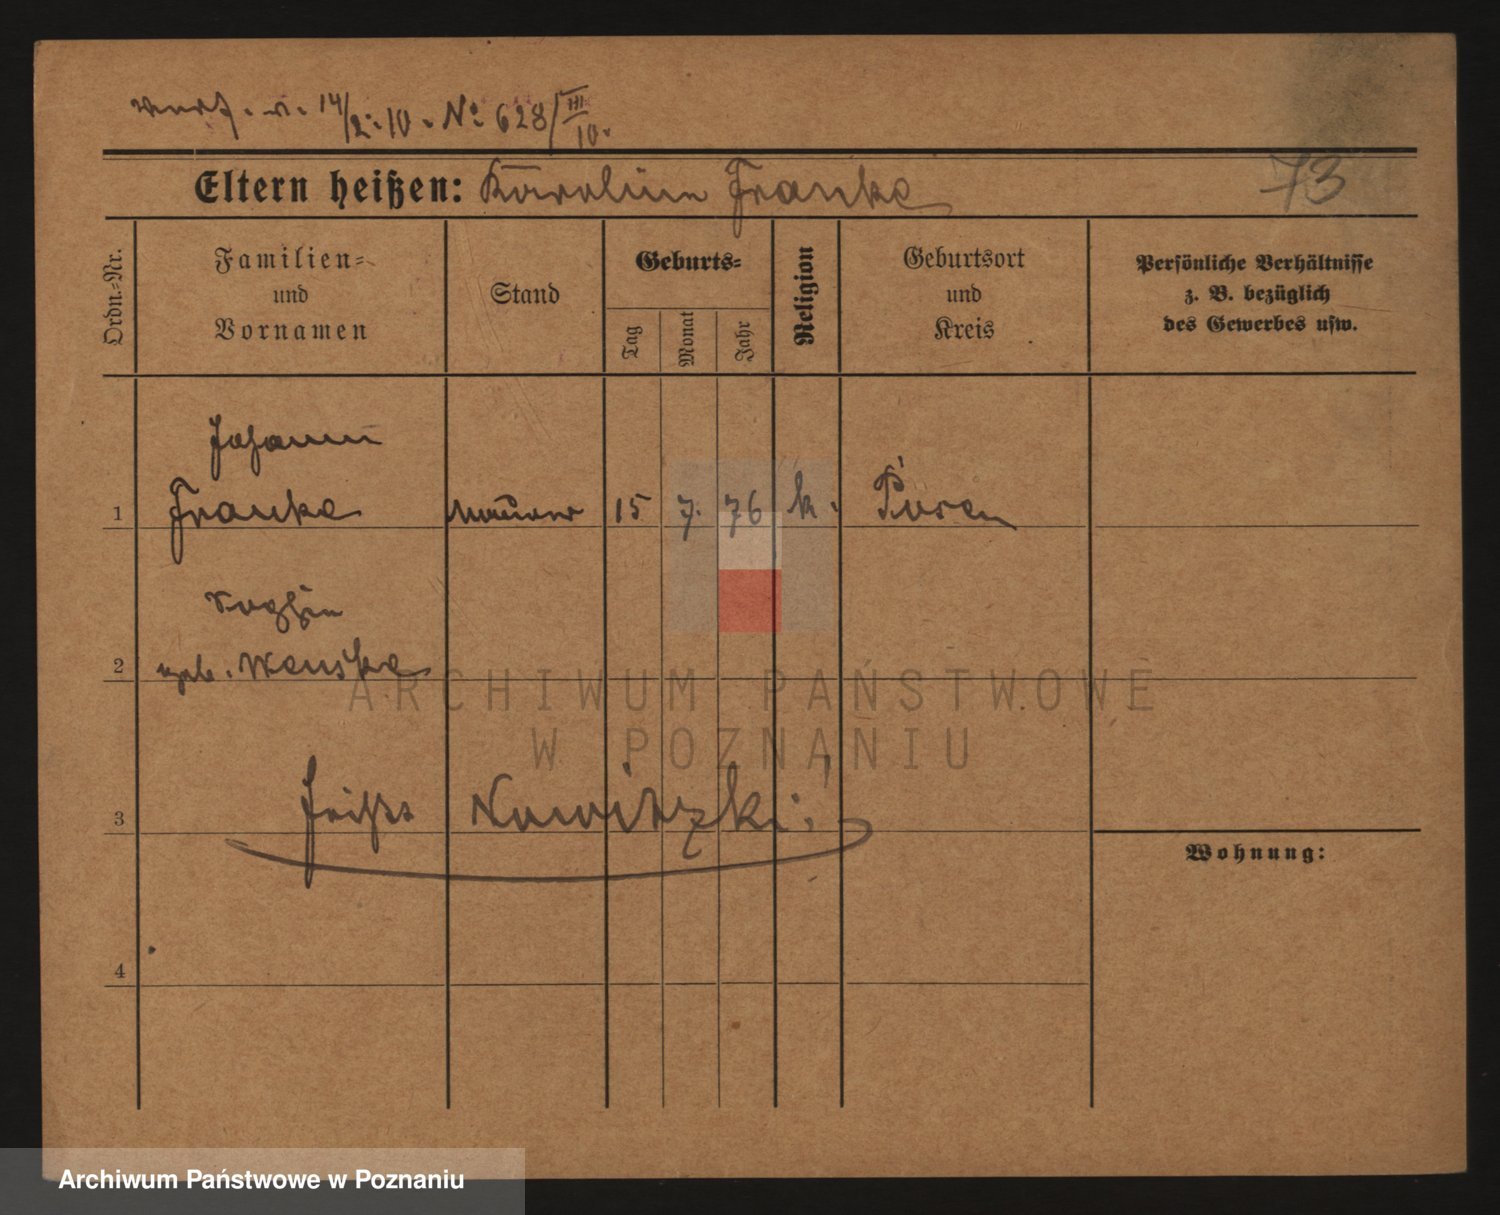 v. 14/2.10. No 628/III 10.
Eltern heißen: Karoline Franke
73
Ordn.-Nr.
Familien-
und
Vornamen
Stand
Geburts-
Tag
Monat
Jahr
Religion
Geburtsort
und
Kreis
Persönliche Verhältnisse
z. B. bezüglich
des Gewerbes usw.
Johann
1 Franke Maurer 15 7. 76 k. Posen
Sophie
2 geb.
3 heißt Nowitzki!
Wohnung:
4
ARCHIWUM PAŃSTWOWE
W POZNANIU
Archiwum Państwowe w Poznaniu